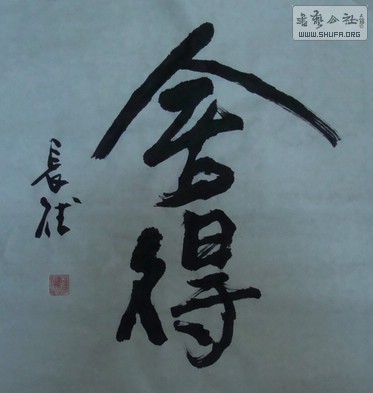 舍得
長往
書藝公社
WWW.SHUFA.ORG